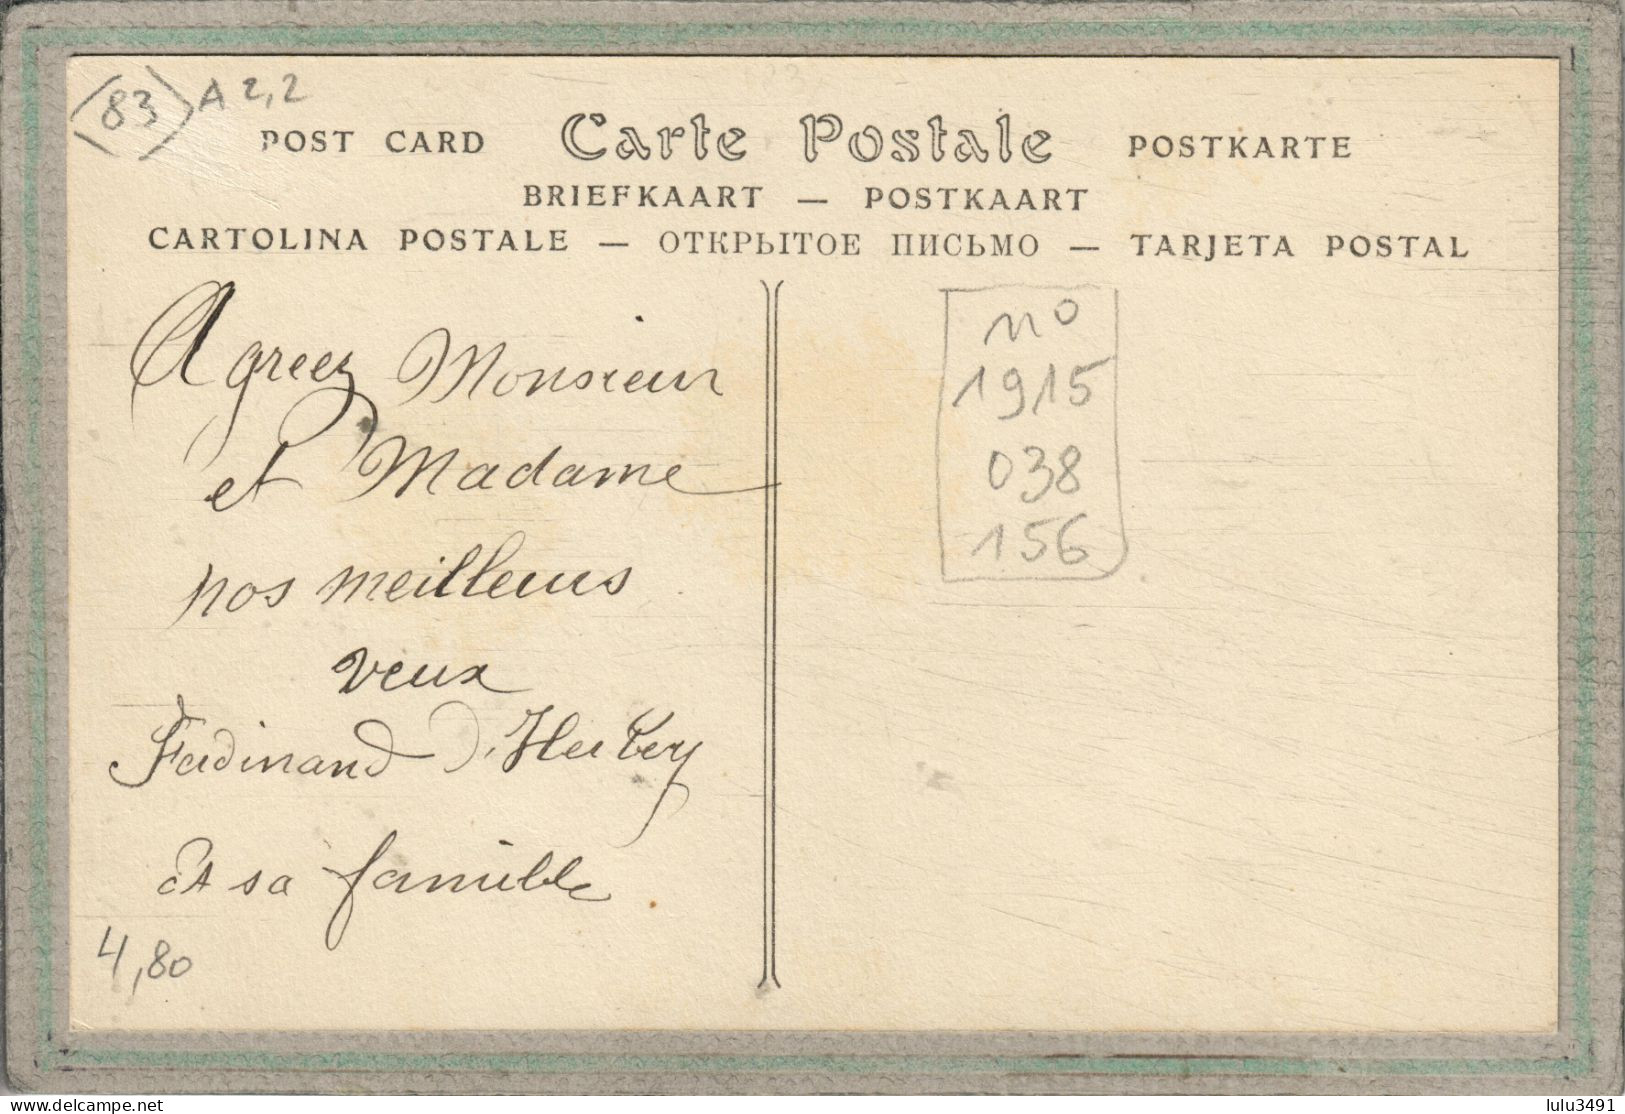 83 A 2,2
POST CARD Carte Postale POSTKARTE
BRIEFKAART — POSTKAART
CARTOLINA POSTALE — ОТКРЫТОЕ ПИСЬМО — TARJETA POSTAL
Agreez Monsieur
et Madame
nos meilleurs
veux
Ferdinand
et sa famille
4,80
no
1915
038
156
delcampe.net
lulu3491